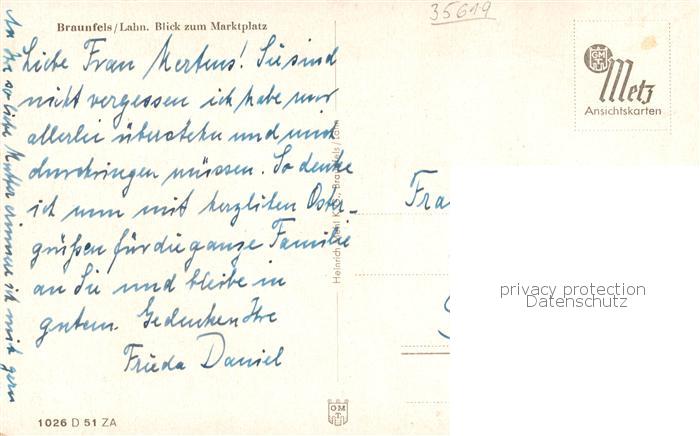 35619
Braunfels/Lahn. Blick zum Marktplatz
Liebe Frau Mertens! Sie sind
nicht vergessen ich habe nur
allerlei überstehn und mich
durchringen müssen. So denke
ich nun mit herzlichen Oster-
grüßen für die ganze Familie
an Sie und bleibe in
gutem Gedenken Ihre
Frieda Daniel
An Ihre so liebe Mutter erinnere ich mich gern
GM
Metz
Ansichtskarten
Fra
privacy protection
Datenschutz
Braunfels/Lahn
GM
1026 D 51 ZA